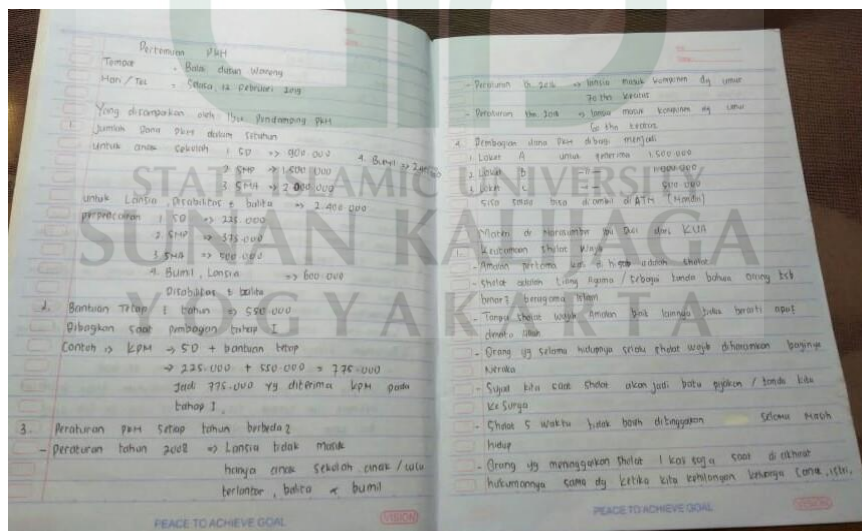 Pertemuan PKH
Tempat : Balai dusun Waneng
Hari / Tgl : Selasa, 12 Februari 2019
Yang disampaikan oleh Ibu Pendamping PKH
Jumlah Dana PKH dalam setahun
untuk anak sekolah 1. SD => 900.000
2. SMP => 1.500.000
3. SMA => 2.000.000
4. Bumil => 2.400.000
untuk Lansia, Disabilitas & balita => 2.400.000
perpencairan 1. SD => 225.000
2. SMP => 375.000
3. SMA => 500.000
4. Bumil, Lansia => 600.000
Disabilitas & balita
2. Bantuan Tetap 1 tahun => 550.000
Dibagikan saat pembagian tahap I
Contoh => KPM => SD + bantuan tetap
=> 225.000 + 550.000 = 775.000
Jadi 775.000 yg diterima KPM pada
tahap I.
3. Peraturan PKH setiap tahun berbeda2
- Peraturan tahun 2008 => Lansia tidak masuk
hanya anak sekolah, anak /
terlantar, balita & bumil
PEACE TO ACHIEVE GOAL
VISION
- Peraturan th 2016 => lansia masuk komponen dg umur
70 thn keatas
- Peraturan thn 2018 => lansia masuk komponen dg umur
60 thn keatas.
4. Pembagian dana PKH dibagi menjadi
1. Loket A untuk penerima 1.500.000
2. Loket B 1.000.000
3. Loket C 500.000
Sisa saldo bisa diambil di ATM (Mandiri)
Materi dr Narasumber Ibu dari KUA
1. Keutamaan Sholat Wajib
- Amalan pertama kali di hisab adalah sholat
- Sholat adalah tiang Agama / sebagai tanda bahwa orang tsb
benar2 beragama Islam
- Tanpa sholat wajib Amalan baik lainnya tidak berarti apa2
dimata Allah
- Orang yg selama hidupnya selalu sholat wajib diharamkan baginya
Neraka
- Sujud kita saat sholat akan jadi batu pijakan / tanda kita
ke Surga
- Sholat 5 waktu tidak boleh ditinggalkan selama masih
hidup
- Orang yg meninggalkan sholat 1 kali saja saat di akhirat
hukumannya sama dg ketika kita kehilangan keluarga (anak, istri,
PEACE TO ACHIEVE GOAL
VISION
STATE ISLAMIC UNIVERSITY
SUNAN KALIJAGA
YOGYAKARTA